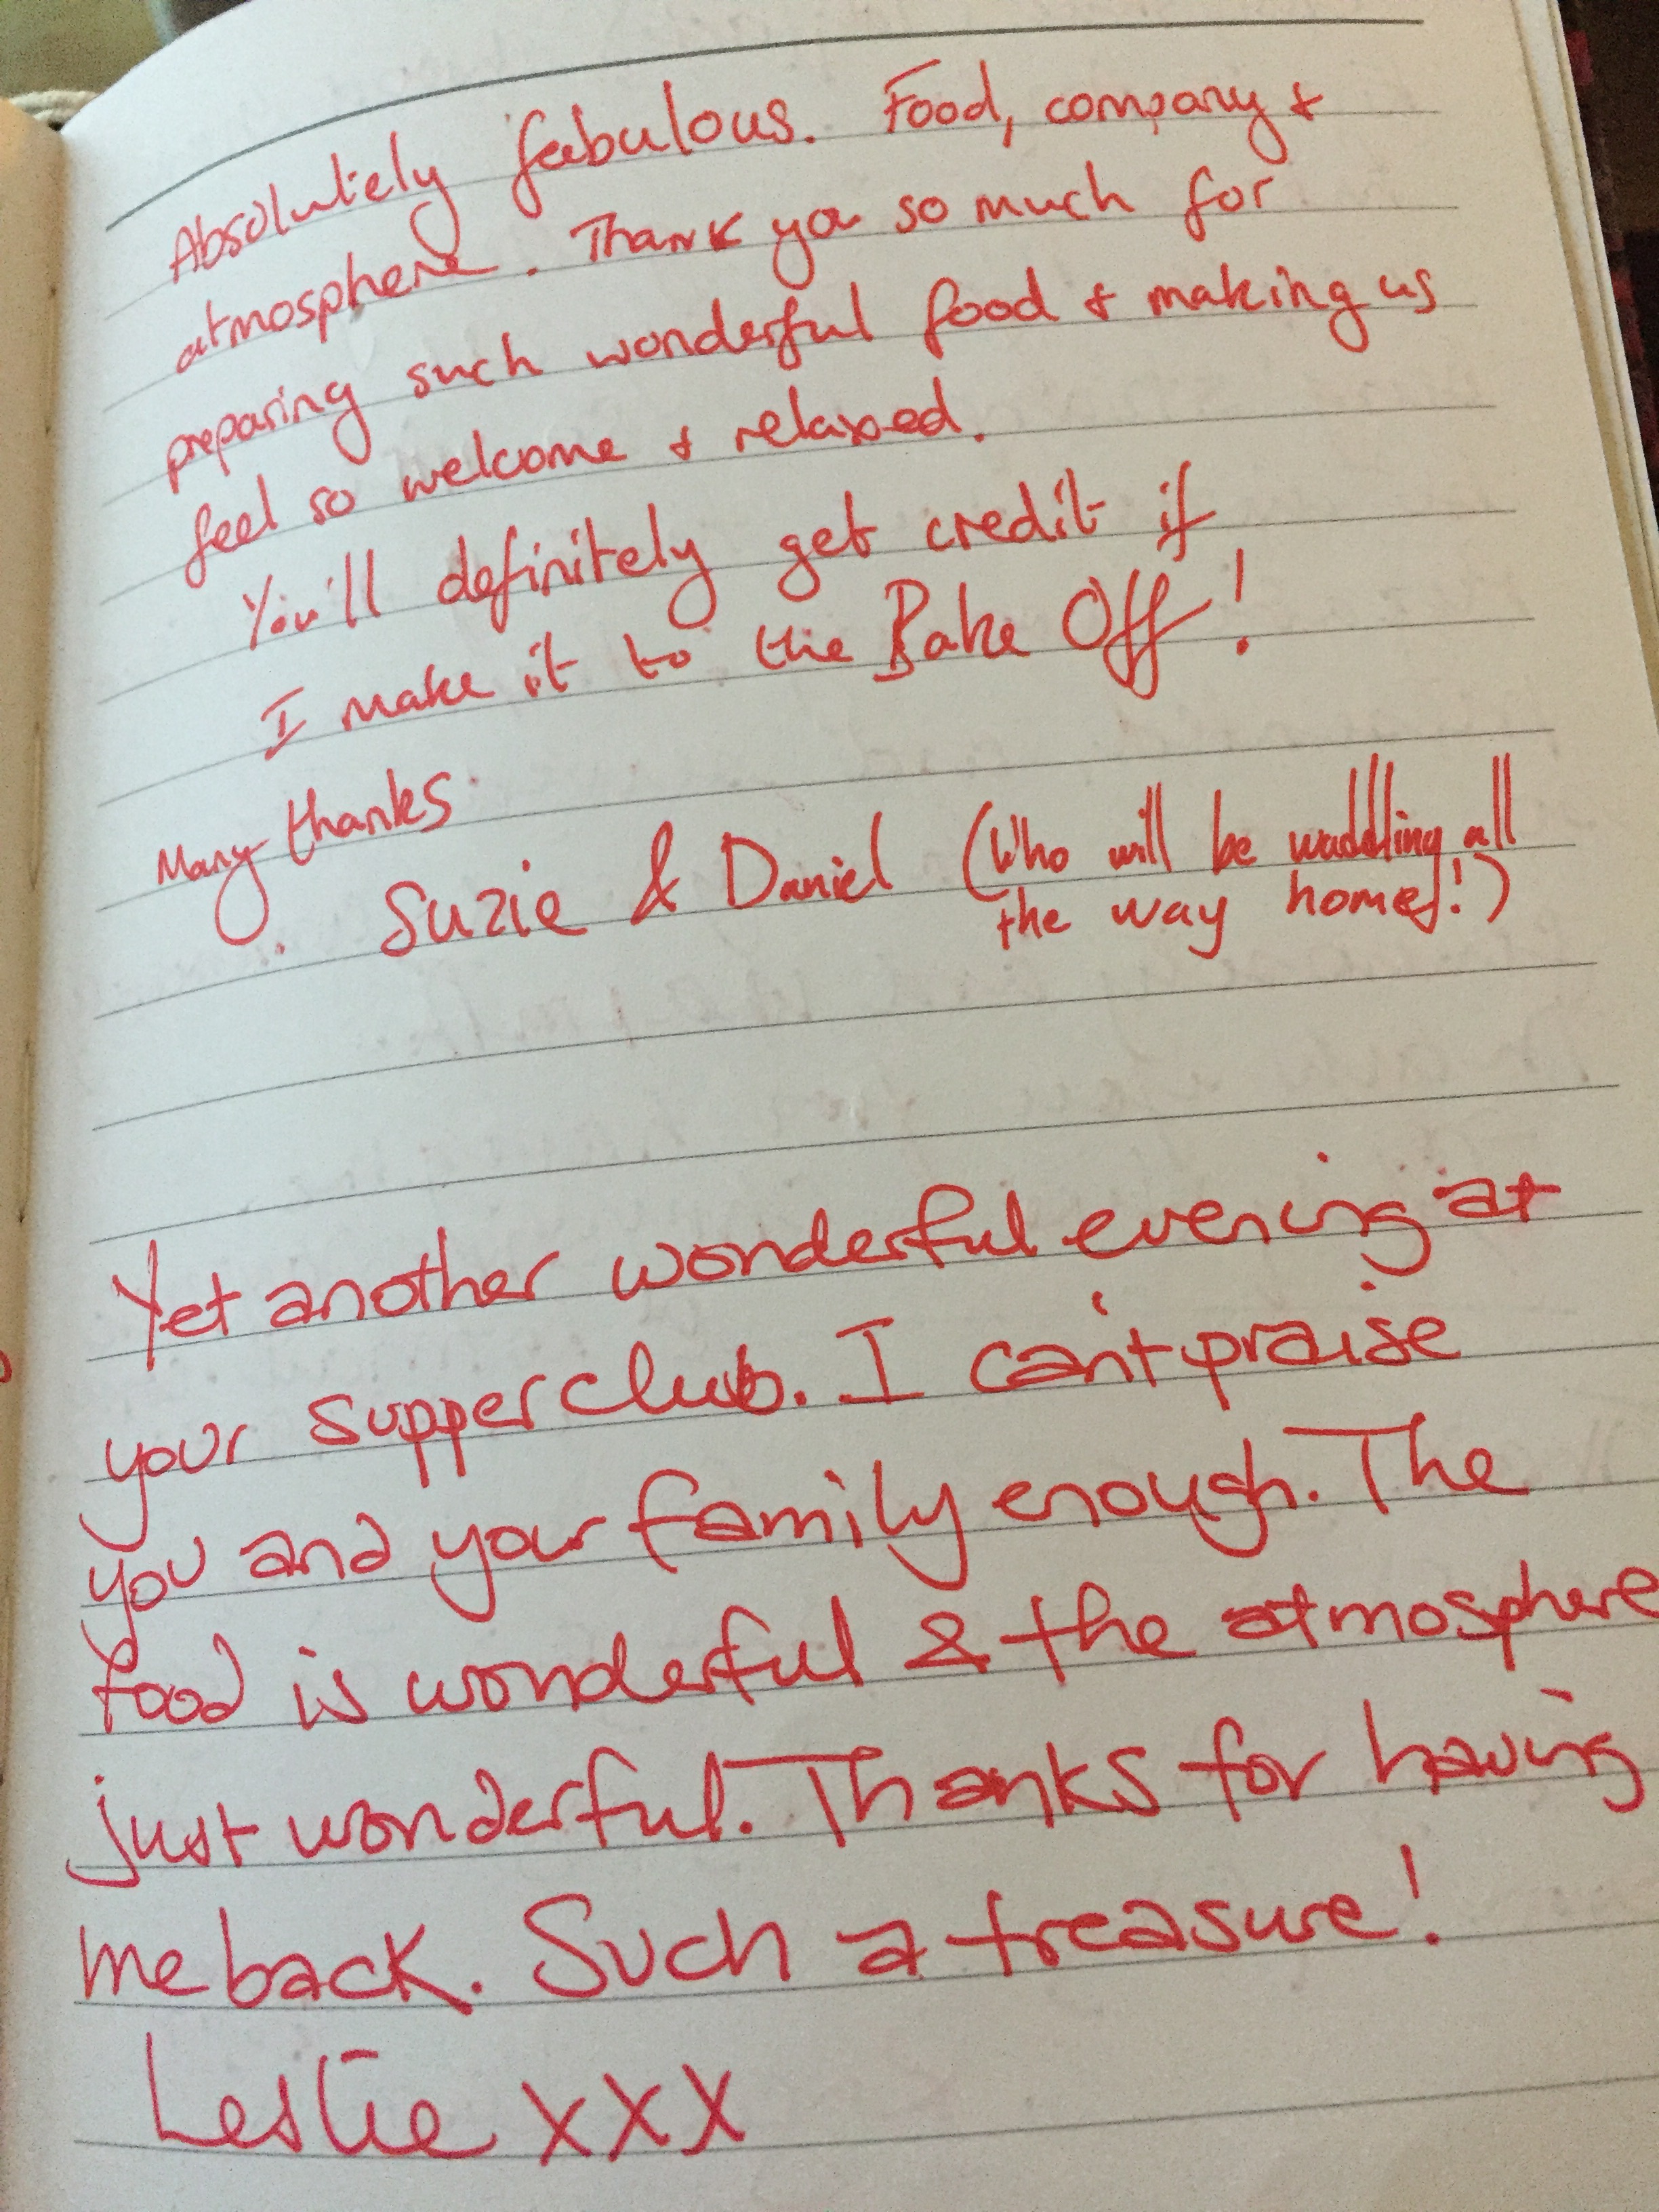 Absolutely fabulous. Food, company &
atmosphere. Thank you so much for
preparing such wonderful food & making us
feel so welcome & relaxed.
You'll definitely get credit if
I make it to the Bake Off!
Many thanks
Suzie & Daniel (Who will be waddling all
the way home!)
Yet another wonderful evening at
your supperclub. I can't praise
you and your family enough. The
food is wonderful & the atmosphere
just wonderful. Thanks for having
me back. Such a treasure!
Leslie xxx